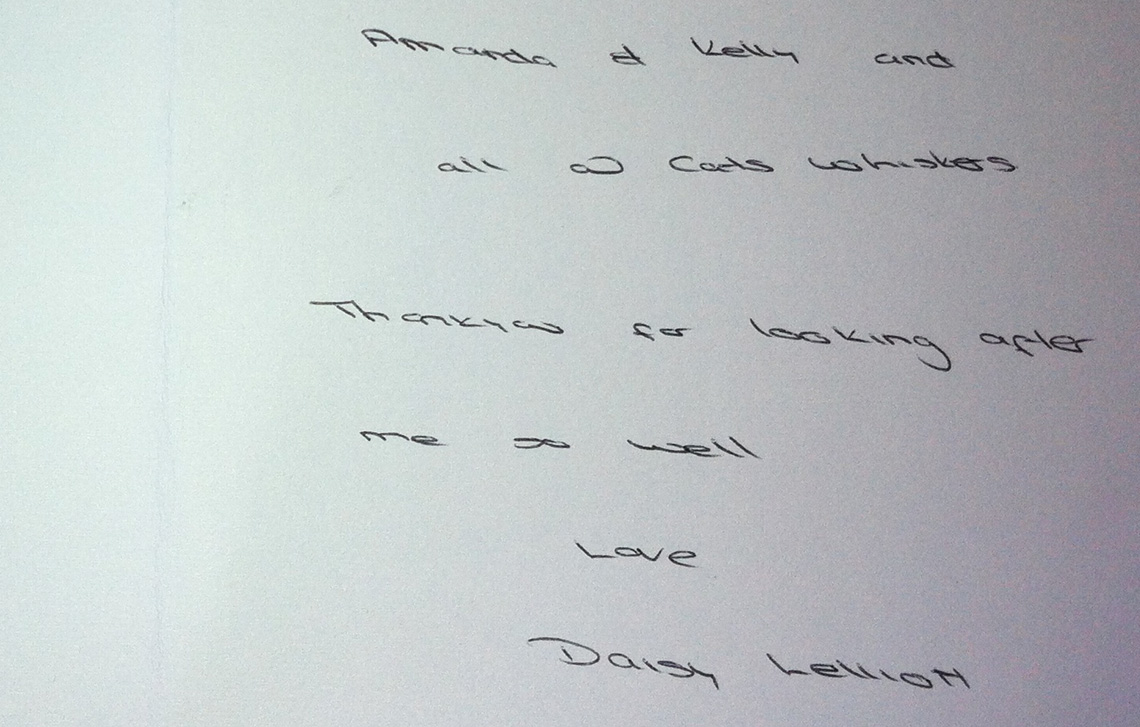 Amanda & Kelly and
all @ Cats Whiskers
Thankyou for looking after
me so well
Love
Daisy Lelliott